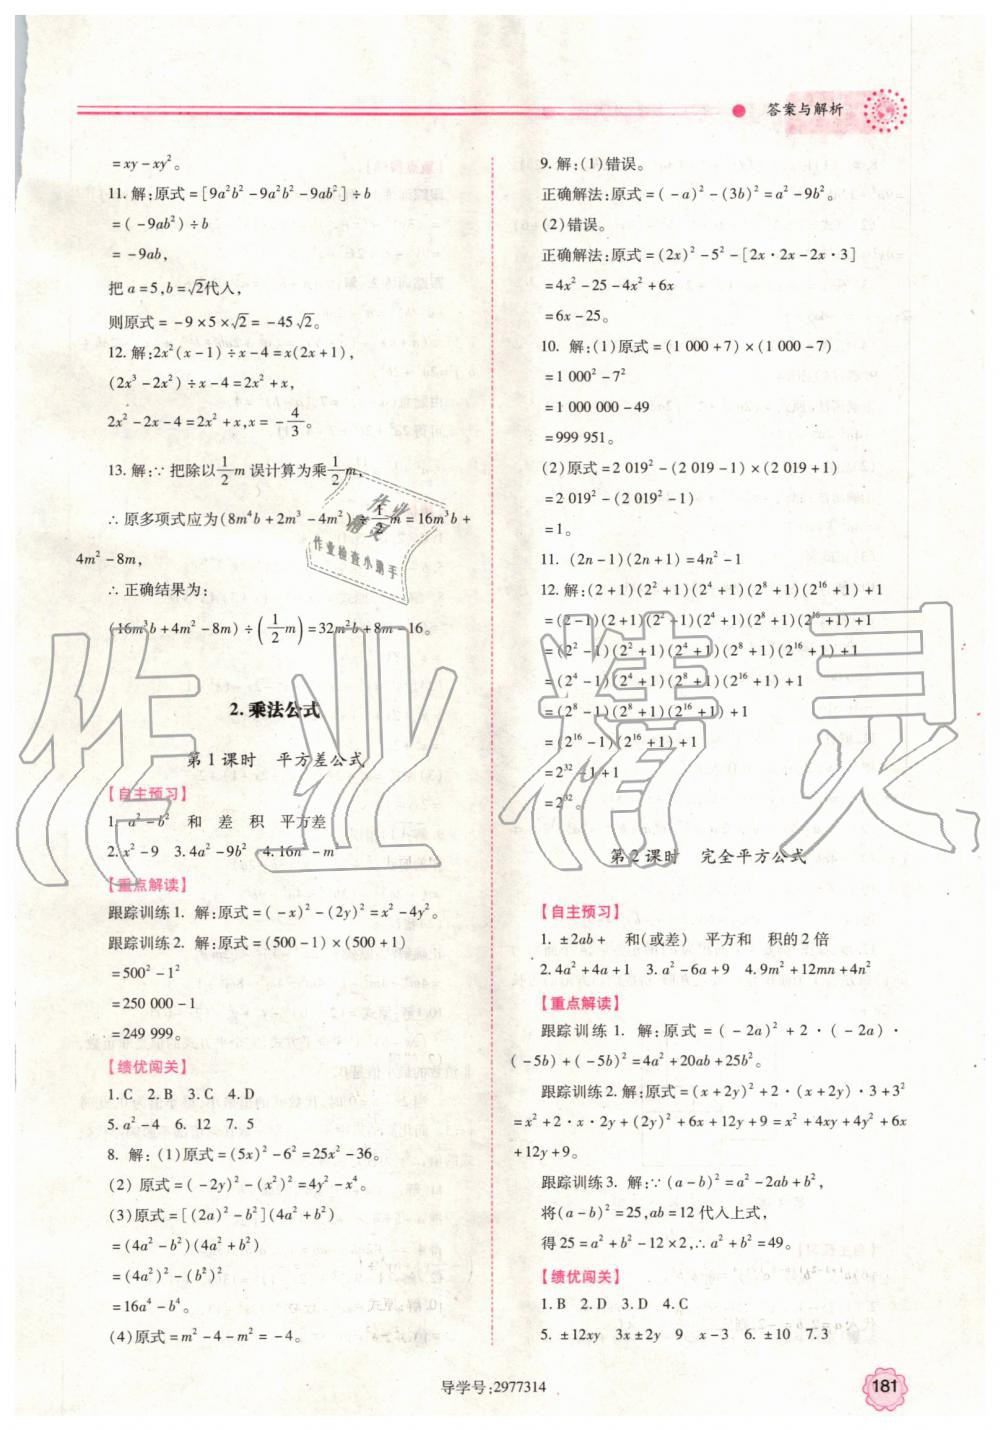 答案与解析
=xy-xy²。
11.解:原式=[9a²b²-9a²b²-9ab²]÷b
=(-9ab²)÷b
=-9ab,
把a=5,b=√2代入,
则原式=-9×5×√2=-45√2。
12.解:2x²(x-1)÷x-4=x(2x+1),
(2x³-2x²)÷x-4=2x²+x,
2x²-2x-4=2x²+x,x=-4/3。
13.解:∵把除以1/2m误计算为乘1/2m,
∴原多项式应为(8m⁴b+2m³-4m²)÷1/2m=16m³b+
4m²-8m,
∴正确结果为:
(16m³b+4m²-8m)÷(1/2m)=32m²b+8m-16。
2.乘法公式
第1课时 平方差公式
【自主预习】
1. a²-b² 和 差 积 平方差
2.x²-9 3.4a²-9b² 4.16n²-m²
【重点解读】
跟踪训练1. 解:原式=(-x)²-(2y)²=x²-4y²。
跟踪训练2. 解:原式=(500-1)×(500+1)
=500²-1²
=250 000-1
=249 999。
【绩优闯关】
1.C 2.B 3.C 4.D
5.a²-4 6.12 7.5
8. 解:(1)原式=(5x)²-6²=25x²-36。
(2) 原式=(-2y)²-(x²)²=4y²-x⁴。
(3)原式=[(2a)²-b²](4a²+b²)
=(4a²-b²)(4a²+b²)
=(4a²)²-(b²)²
=16a⁴-b⁴。
(4)原式=m²-4-m²=-4。
9.解:(1)错误。
正确解法:原式=(-a)²-(3b)²=a²-9b²。
(2)错误。
正确解法:原式=(2x)²-5²-[2x·2x-2x·3]
=4x²-25-4x²+6x
=6x-25。
10. 解:(1)原式=(1 000+7)×(1 000-7)
=1 000²-7²
=1 000 000-49
=999 951。
(2)原式=2 019²-(2 019-1)×(2 019+1)
=2 019²-(2 019²-1)
=1。
11. (2n-1)(2n+1)=4n²-1
12.解:(2+1)(2²+1)(2⁴+1)(2⁸+1)(2¹⁶+1)+1
=(2-1)(2+1)(2²+1)(2⁴+1)(2⁸+1)(2¹⁶+1)+1
=(2²-1)(2²+1)(2⁴+1)(2⁸+1)(2¹⁶+1)+1
=(2⁴-1)(2⁴+1)(2⁸+1)(2¹⁶+1)+1
=(2⁸-1)(2⁸+1)(2¹⁶+1)+1
=(2¹⁶-1)(2¹⁶+1)+1
=2³²-1+1
=2³²。
第2课时 完全平方公式
【自主预习】
1. ±2ab+ 和(或差) 平方和 积的2倍
2.4a²+4a+1 3.a²-6a+9 4.9m²+12mn+4n²
【重点解读】
跟踪训练1. 解:原式=(-2a)²+2·(-2a)·
(-5b)+(-5b)²=4a²+20ab+25b²。
跟踪训练2.解:原式=(x+2y)²+2·(x+2y)·3+3²
=x²+2·x·2y+(2y)²+6x+12y+9=x²+4xy+4y²+6x
+12y+9。
跟踪训练3. 解:∵(a-b)²=a²-2ab+b²,
将(a-b)²=25,ab=12代入上式,
得25=a²+b²-12×2,∴a²+b²=49。
【绩优闯关】
1.B 2.D 3.D 4.C
5. ±12xy 3x±2y 9 x-3 6. ±10 7.3
导学号:2977314
181
作业精灵
作业
精灵
作业检查小助手